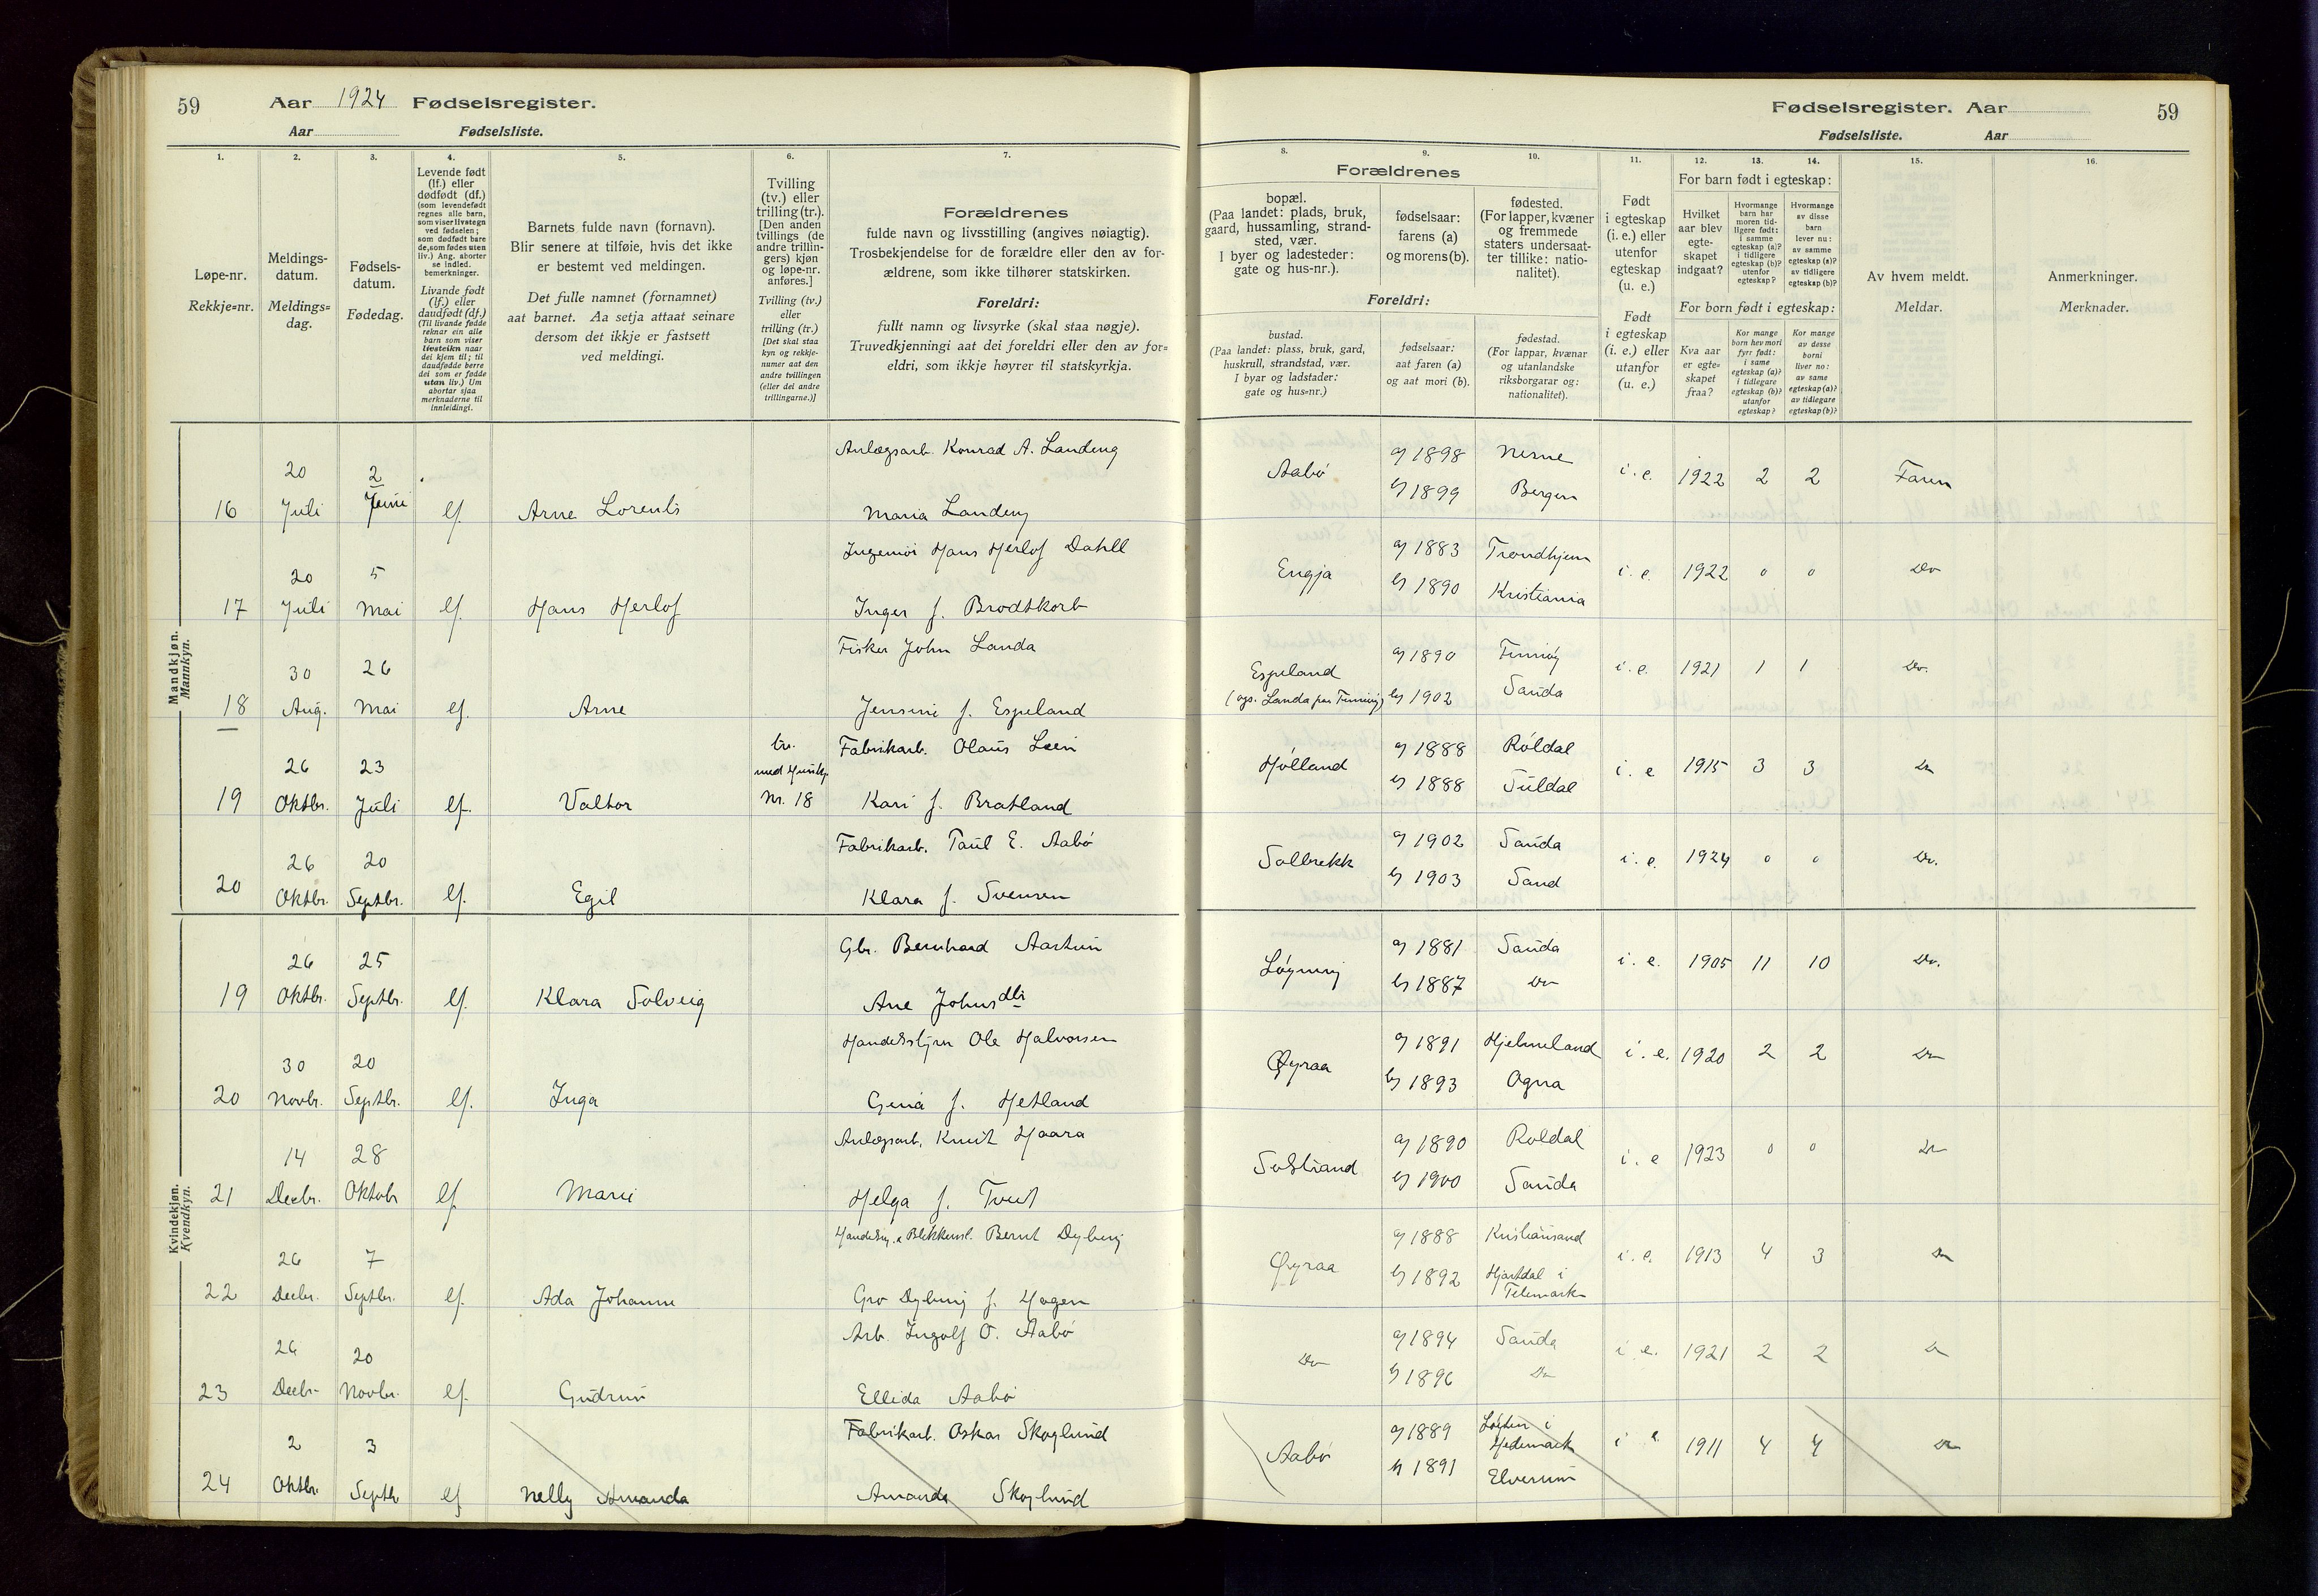 59 Aar 1924 Fødselsregister.
Aar Fødselsliste.
Fødselsregister. Aar 59
Fødselsliste. Aar
1. 2. 3. 4. 5. 6. 7.
8. 9. 10. 11. 12. 13. 14. 15. 16.
Løpe-nr.
Rekkje=nr.
Meldings-
datum.
Meldings=
dag.
Fødsels-
datum.
Fødedag.
Levende født
(lf.) eller
dødfødt (df.)
(som levendefødt
regnes alle barn,
som viser livstegn
ved fødselen;
som dødfødt bare
de, som fødes uten
liv.) Ang. aborter
se indled.
bemerkninger.
Livande født
(lf.) eller
daudfødt (df.)
(Til livande fødde
reknar ein alle
barn som viser
livsteikn naar
dei kjem til; til
daudfødde berre
dei som er fødde
utan liv.) Um
abortar sjaa
merknaderne til
innleidingi.
Barnets fulde navn (fornavn).
Blir senere at tilføie, hvis det ikke
er bestemt ved meldingen.
Det fulle namnet (fornamnet)
aat barnet. Aa setja attaat seinare
dersom det ikkje er fastsett
ved meldingi.
Tvilling
(tv.) eller
trilling (tr.).
[Den anden
tvillings (de
andre trillin-
gers) kjøn
og løpe-nr.
anføres.]
Tvilling (tv.)
eller
trilling (tr.)
[Det skal staa
kyn og rekkje-
numer aat den
andre tvillingen
(eller dei andre
trillingarne.)]
Forældrenes
fulde navn og livsstilling (angives nøiagtig).
Trosbekjendelse for de forældre eller den av for-
ældrene, som ikke tilhører statskirken.
Foreldri:
fullt namn og livsyrke (skal staa nøgje).
Truvedkjenningi aat dei foreldri eller den av for=
eldri, som ikkje høyrer til statskyrkja.
Forældrenes
bopæl.
(Paa landet: plads, bruk,
gaard, hussamling, strand-
sted, vær.
I byer og ladesteder:
gate og hus-nr.).
fødselsaar:
farens (a)
og morens (b).
fødested.
(For lapper, kvæner
og fremmede
staters undersaat-
ter tillike: natio-
nalitet).
Foreldri:
bustad.
(Paa landet: plass, bruk, gard,
huskrull, strandstad, vær.
I byar og ladstader:
gate og hus=nr.)
fødselsaar:
aat faren (a)
og aat mori (b).
fødestad.
(For lappar, kvænar
og utanlandske
riksborgarar og:
nationalitet).
Født
i egteskap
(i. e.) eller
utenfor
egteskap
(u. e.)
Født
i egteskap
(i. e.) eller
utanfor
(u. e.)
For barn født i egteskap:
Hvilket
aar blev
egte-
skapet
indgaat?
Hvormange
barn har
moren tid-
ligere født:
i samme
egteskap (a)?
i tidligere
egteskap (b)?
utenfor
egteskap?
Hvormange
av disse
barn
lever nu:
av samme
egteskap (a)?
av tidligere
egteskap (b)?
For born født i egteskap:
Kva aar
er egte-
skapet
fraa?
Kor mange
born hev mori
fyrr født:
i same
egteskap (a)?
i tidlegare
egteskap (b)?
utanfor
egteskap?
Kor mange
av desse
borni
liver no:
av same
egteskap (a)?
av tidlegare
egteskap (b)?
Av hvem meldt.
Meldar.
Anmerkninger.
Merknader.
Mandkjøn.
Mannkyn.
16 20 Juli 2 Juni lf. Arne Lorents
Anlægsarb. Konrad A. Landeng
Maria Landeng
Aabø a) 1898 b) 1899 Bergen i. e. 1922 2 2 Faren
17 20 Juli 5 Mai lf. Hans Herlof
Ingeniør Hans Herlof Dahll
Inger f. Brodtkorb
Engja a) 1883 Trondhjem b) 1890 Kristiania i. e. 1922 0 0 Do
18 30 Aug. 26 Mai lf. Arne
Fisker John Landa
Jensine f. Espeland
Espeland a) 1890 Finnøy b) 1902 Sauda i. e. 1921 1 1 Do.
19 26 Oktbr. 23 Juli lf. Valter
tv.
Nr. 18
Fabrikarb. Olaus
Kari f. Bratland
Hølland a) 1888 Røldal b) 1888 Suldal i. e 1915 3 3 Do
20 26 Oktbr. 20 Septbr. lf. Egil
Fabrikarb. Paul E. Aabø
Klara f. Svensen
Solbrekk a) 1902 Sauda b) 1903 Sand i. e. 1924 0 0 Do.
Kvindekjøn.
Kvendkyn.
19 26 Oktbr. 25 Septbr. lf. Klara Solveig
Gbr. Bernhard Aartun
Ane Johnsdtr
a) 1881 Sauda b) 1887 Do i. e. 1905 11 10 Do.
20 30 Novbr. 20 Septbr. lf. Inga
Ole Halvorsen
f. Hetland
Øyraa a) 1891 Hjelmeland b) 1893 Ogna i. e. 1920 2 2 Do
21 14 Decbr. 28 Oktobr lf. Marie
Anlægsarb. Knut Haara
Helga f. Tveit
Solstrand a) 1890 Røldal b) 1900 Sauda i. e 1923 0 0 Do
22 26 Decbr. 7 Septbr. lf. Ada Johanne
Bernt Dybing
Gro Dybing f. Hagen
Øyraa a) 1888 Kristiansand b) 1892 Hjartdal i Telemark i. e. 1913 4 3 Do
23 26 Decbr. 20 Novbr. lf. Gudrun
Arb. Ingolf O. Aabø
Ellida Aabø
Do a) 1894 Sauda b) 1896 Do i. e. 1921 2 2 Do
24 2 Oktbr. 3 Septbr lf Nelly Amanda
Fabrikarb. Oskar Skoglund
Amanda Skoglund
Aabø a) 1889 Løiten i Hedemark b) 1891 Elverum i e. 1911 4 4 Do